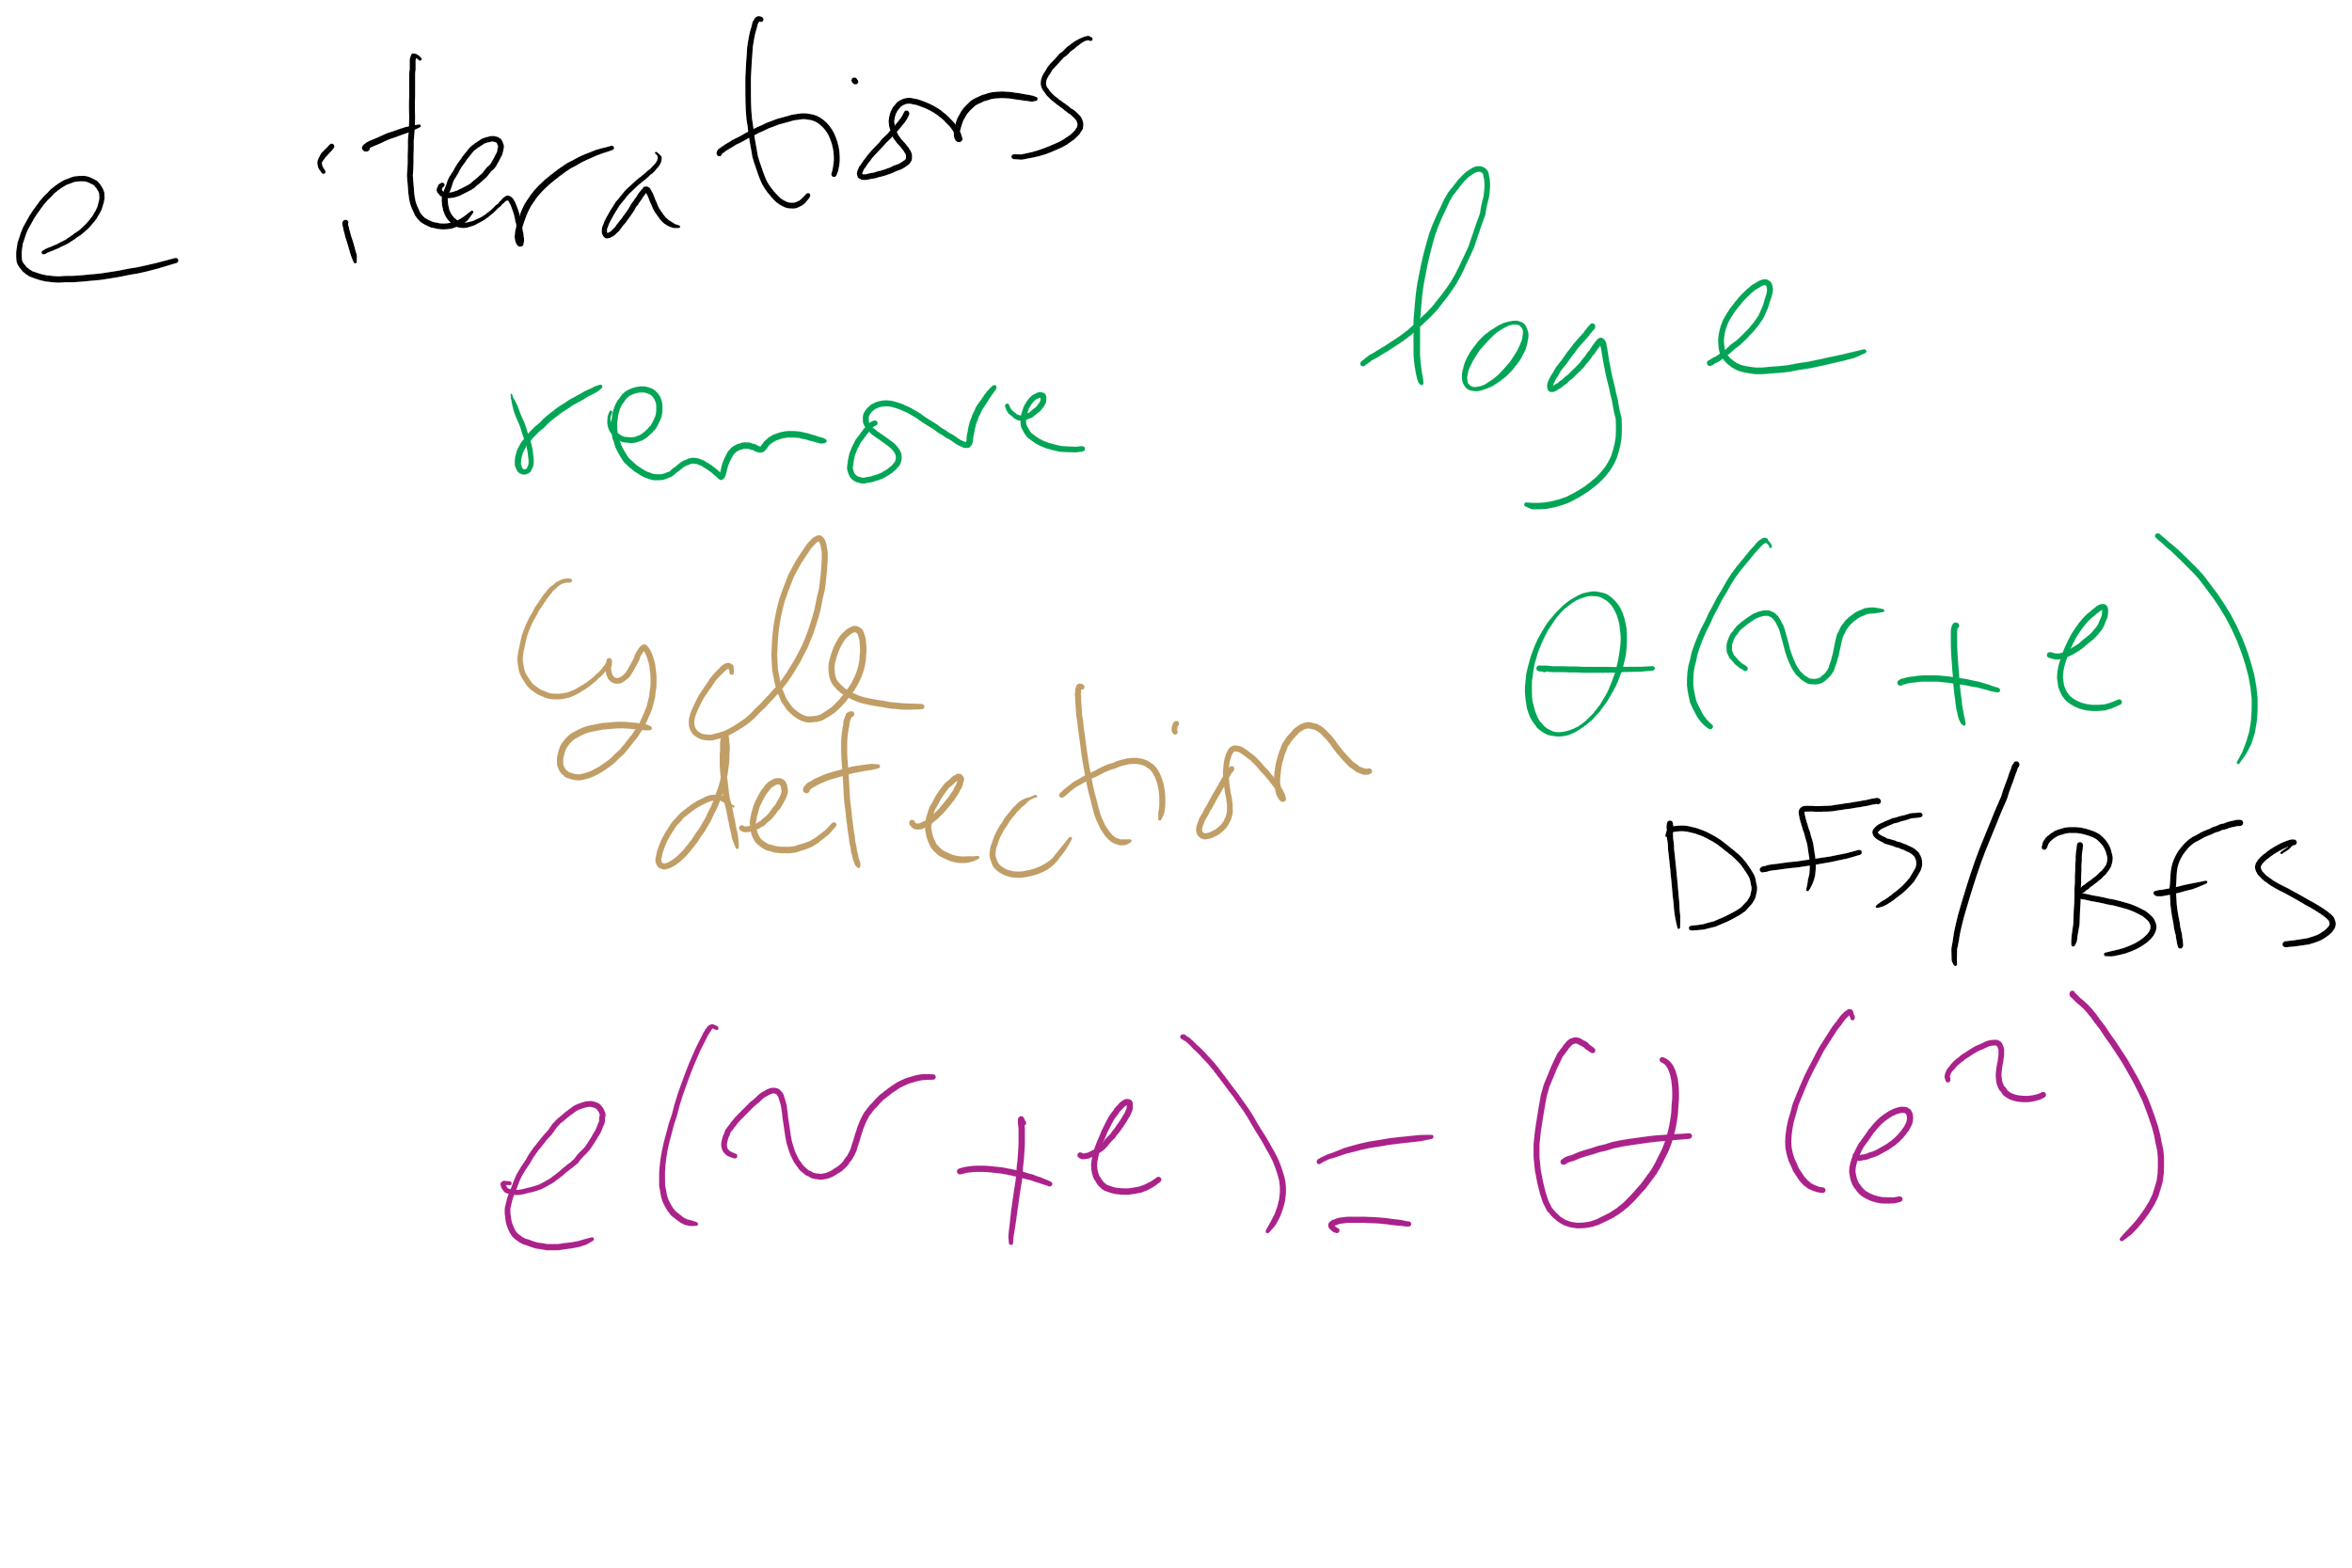 e iterations
remove log e
cycle θ(v+e)
detection DFS/BFS
e(v+e) = θ(e²)